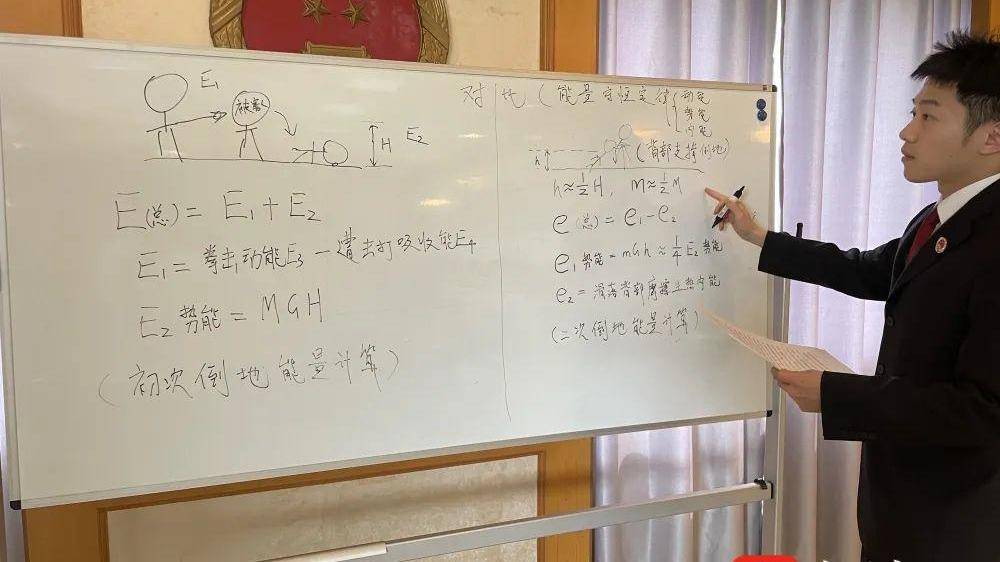 E₁
被害人
H
E₂
E(总) = E₁ + E₂
E₁ = 拳击动能E₃ — 遭击打吸收能E₄
E₂ 势能 = MGH
(初次倒地能量计算)
对比(能量守恒定律
动能
势能
内能
h
(背部支撑倒地)
h≈½H, m≈½M
e(总) = e₁-e₂
e₁ 势能 = mGh ≈ ¼E₂ 势能
e₂ = 滑落背部摩擦生热内能
(二次倒地能量计算)